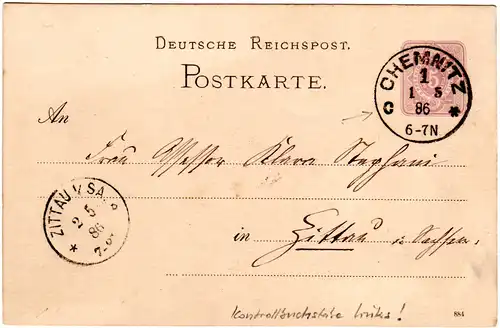 DEUTSCHE REICHSPOST.
POSTKARTE.
CHEMNITZ
1
1 5
86
6-7N
C *
An
Frau Assessor Klara Stephani
ZITTAU I/ SA.
2 5
86
*
in Zittau i. Sachsen.
Kontrollbuchstabe links!
884